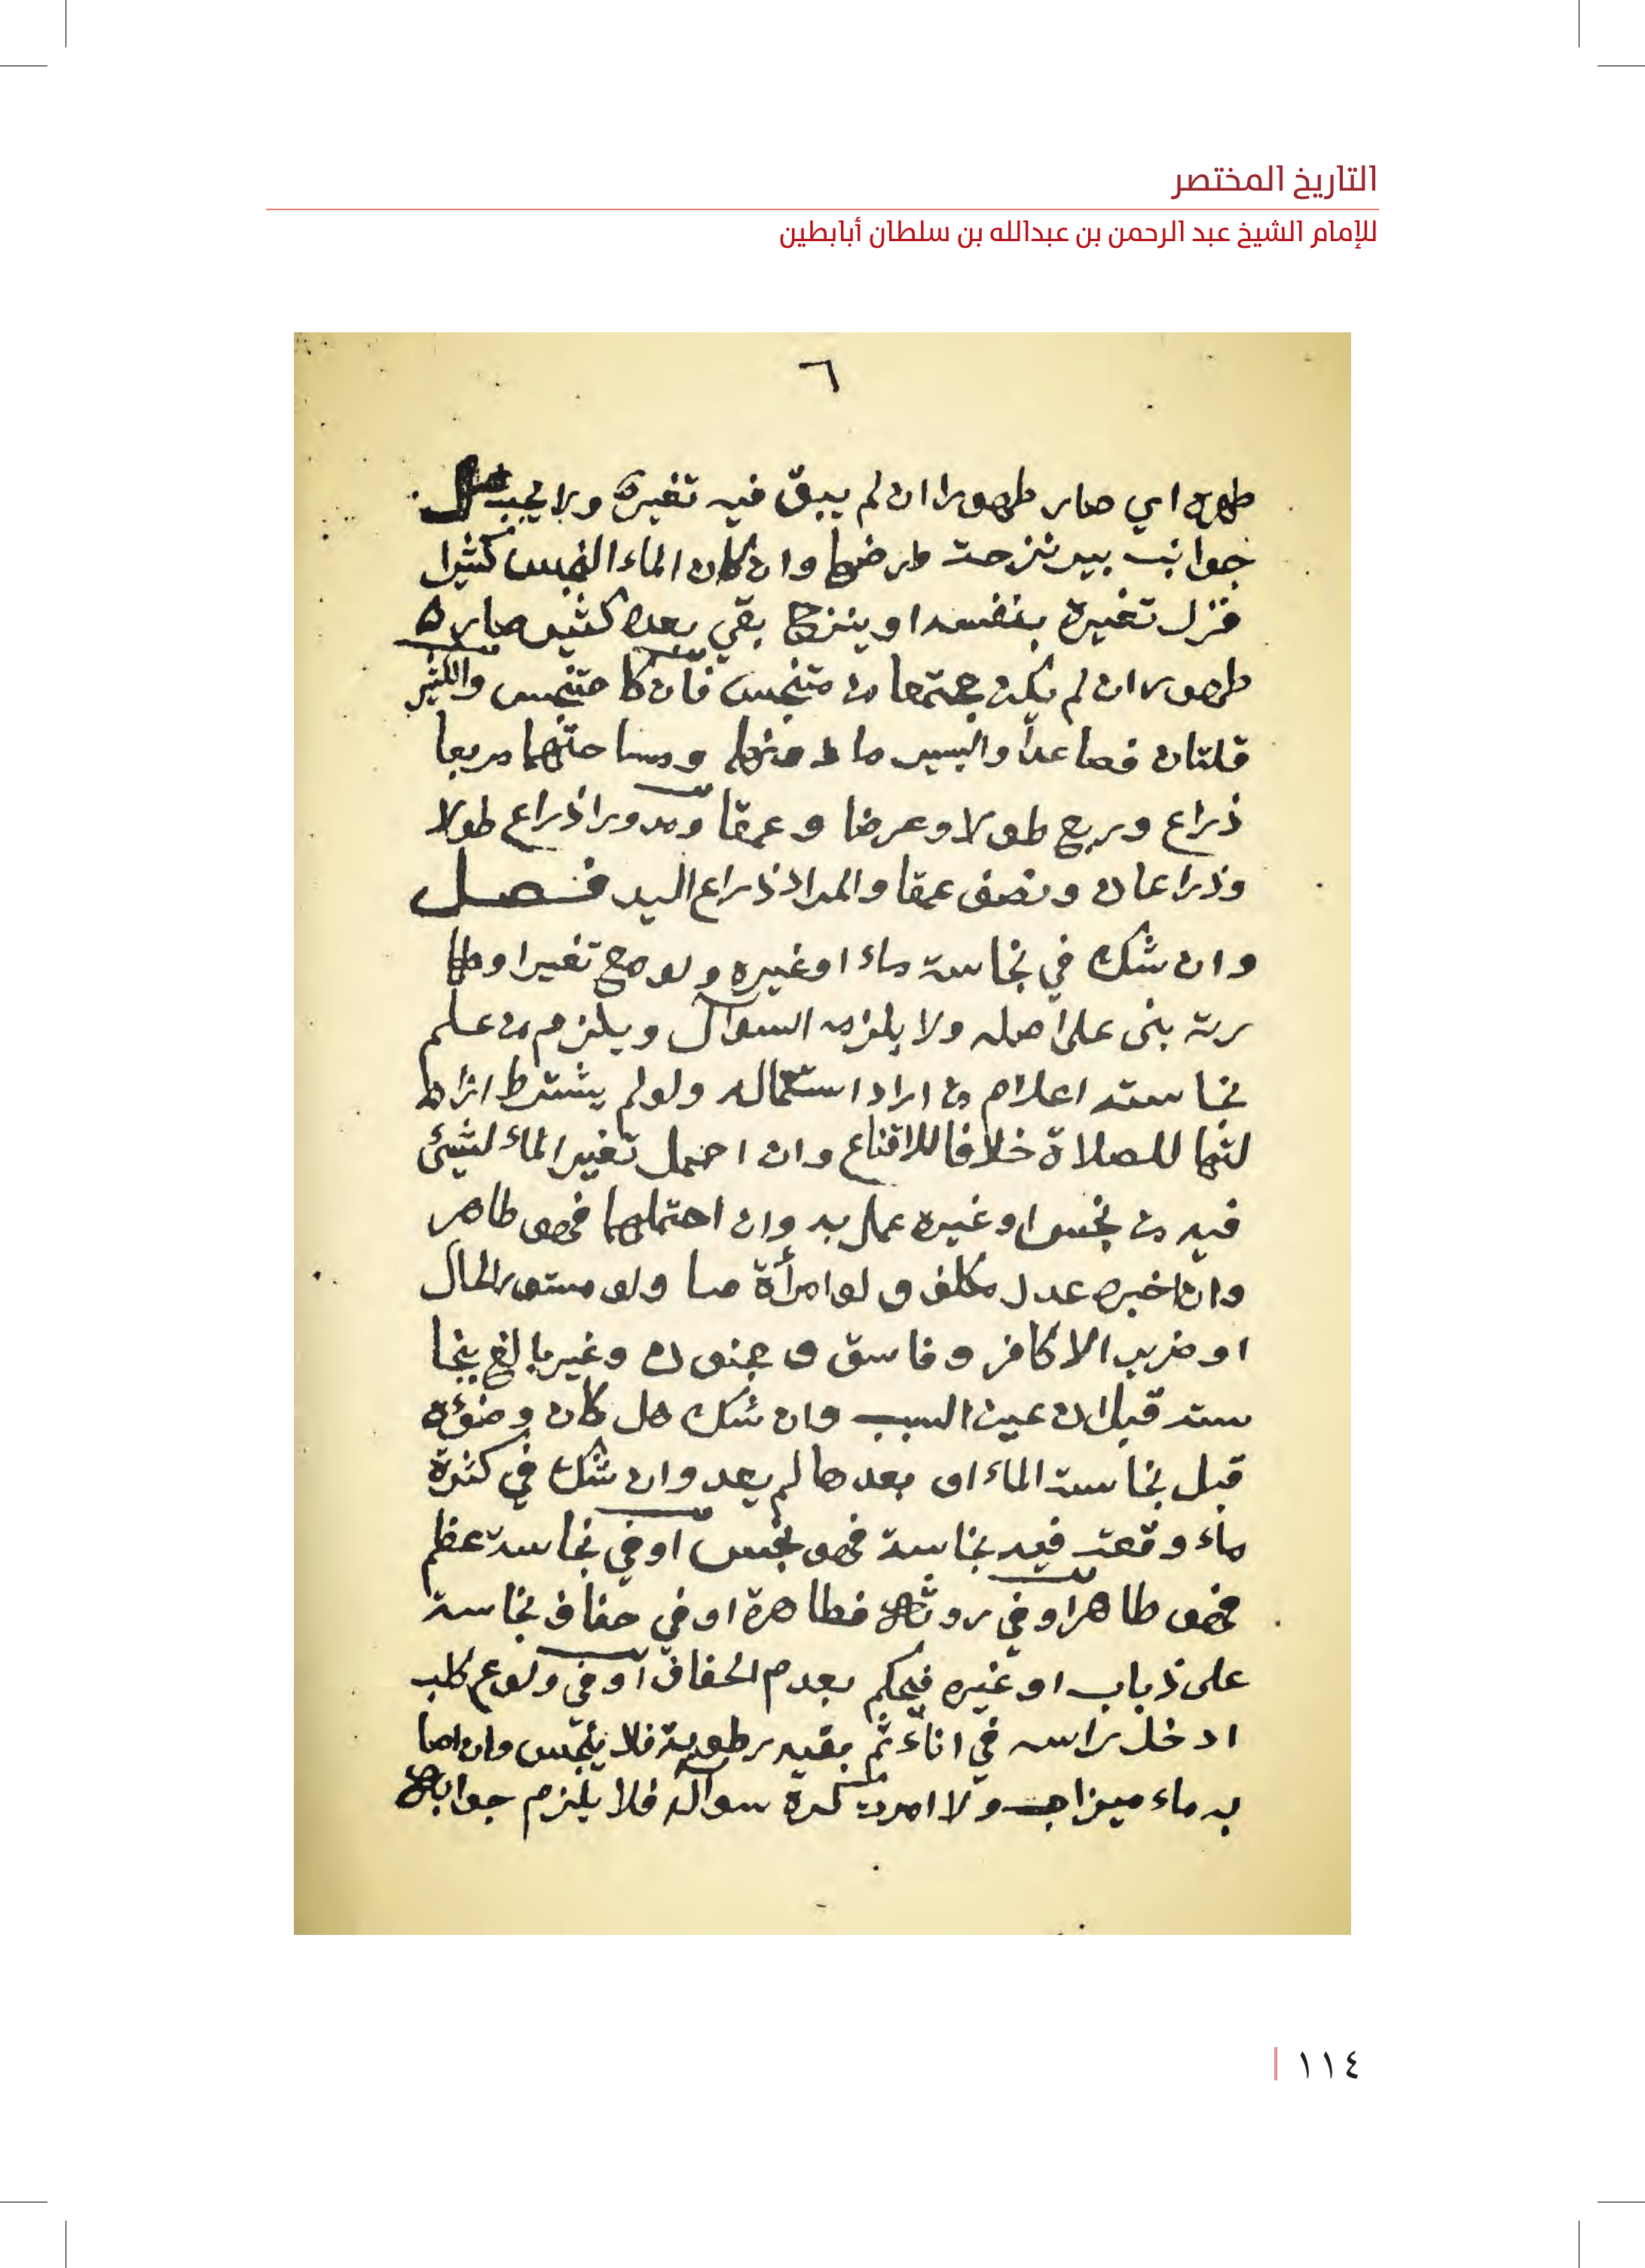 التاريخ المختصر
للإمام الشيخ عبد الرحمن بن عبدالله بن سلطان أبابطين
٦
طهره اي صار طهورا ان لم يبق فيه تغيره ولا يجب غسل
جوانب بير نزحت وان كان الماء النجس كثيرا
فزل تغيره بنفسه او ينزح بقي بعده كثير صار
طهورا ان لم يكن مجتمعا من متنجس فان كا متنجس والكثير
قلتان فصاعدا واليسير ما دونهما ومساحتهما مربعا
ذراع وربع طولا وعرضا وعمقا ومدورا ذراع طولا
وذراعان ونصف عمقا والمراد ذراع اليد فصل
وان شك في نجاسة ماء او غيره ولو مع تغير او طها
رته بنى على اصله ولا يلزمه السوآل ويلزم من علم
نجاسته اعلام من اراد استعماله ولو لم يشترط ازا
لتها للصلاة خلافا للاقناع وان احتمل تغير الماء لشيئ
فيه من نجس او غيره عمل به وان احتملهما فهو طاهر
وان اخبره عدل مكلف ولو امرأة ولو مستور الحال
او ضرير الا كافر وفاسق ومجنون وغير بالغ بنجا
سته قبل ان عين السبب وان شك هل كان وضوءه
قبل نجاسة الماء او بعدها لم يعد وان شك في كثرة
ماء وقعت فيه نجاسة فهو نجس او في نجاسة عظم
فهو طاهر او في روثة فطاهرة او في جفاف نجاسة
على ذباب او غيره فيحكم بعدم الجفاف او في ولوغ كلب
ادخل راسه في اناء ثم بفيه رطوبة فلا ينجس وان اصا
به ماء ميزاب ولا امرت كره سوآله فلا يلزم جوابه
١١٤